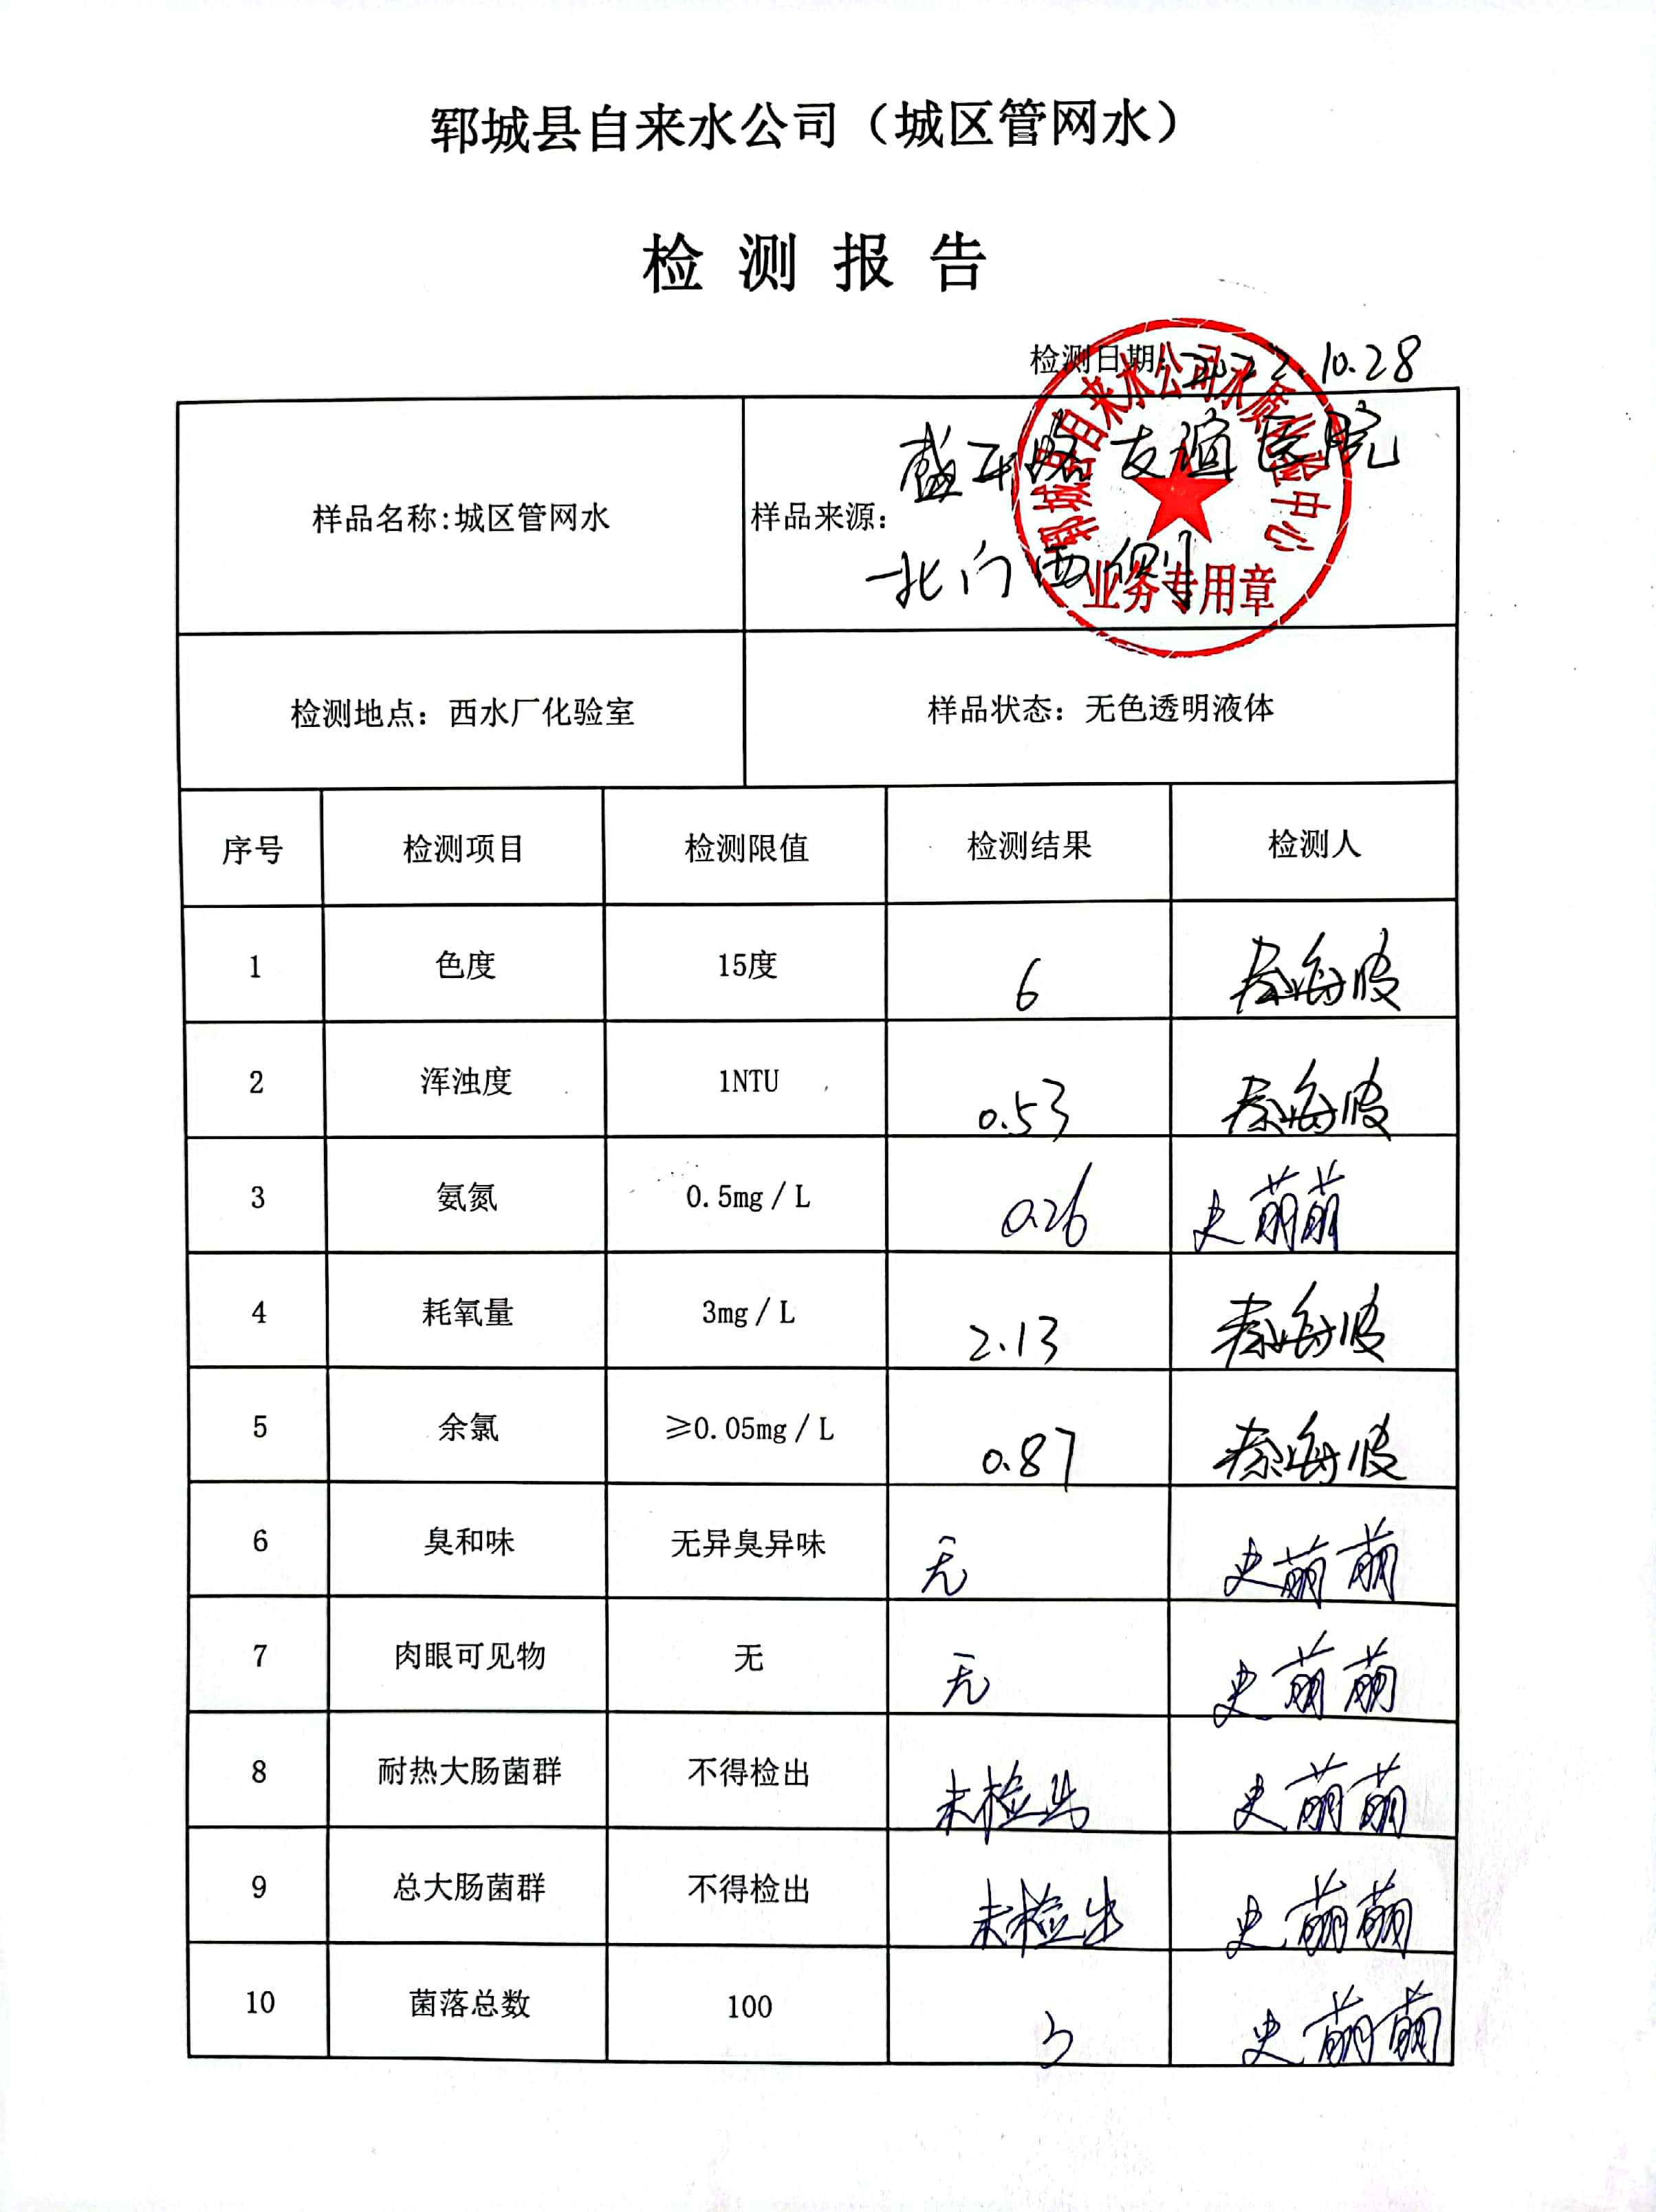 郓城县自来水公司（城区管网水）
检测报告
检测日期：2022.10.28
样品名称:城区管网水
样品来源：盛平路友谊医院
北门西侧
郓城县自来水公司水质化验中心
业务专用章
检测地点：西水厂化验室
样品状态：无色透明液体
序号 检测项目 检测限值 检测结果 检测人
1 色度 15度 6 秦海波
2 浑浊度 1NTU 0.53 秦海波
3 氨氮 0.5mg／L 0.26 史萌萌
4 耗氧量 3mg／L 2.13 秦海波
5 余氯 ≥0.05mg／L 0.87 秦海波
6 臭和味 无异臭异味 无 史萌萌
7 肉眼可见物 无 无 史萌萌
8 耐热大肠菌群 不得检出 未检出 史萌萌
9 总大肠菌群 不得检出 未检出 史萌萌
10 菌落总数 100 3 史萌萌